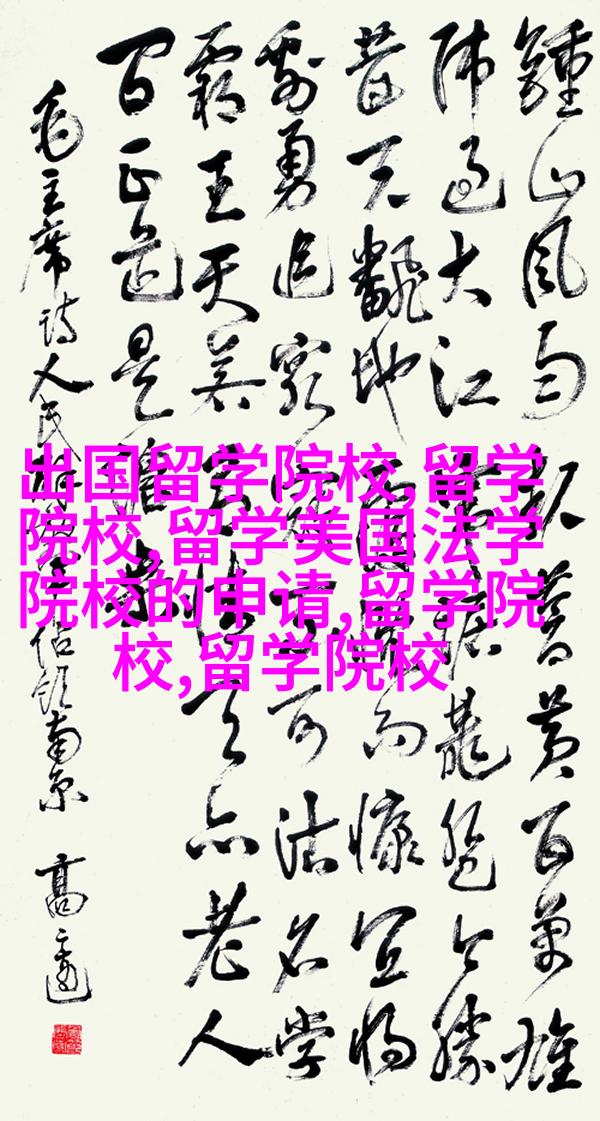 鍾山风雨起蒼黄百萬雄
师过大江虎踞龍盤今勝
昔天翻地覆慨而慷宜将
剩勇追窮寇不可沽名学
霸王天若有情天亦老人
间正道是滄桑
毛主席诗人民解放军占领南京 高
出国留学院校,留学
院校,留学美国法学
院校的申请,留学院
校,留学院校